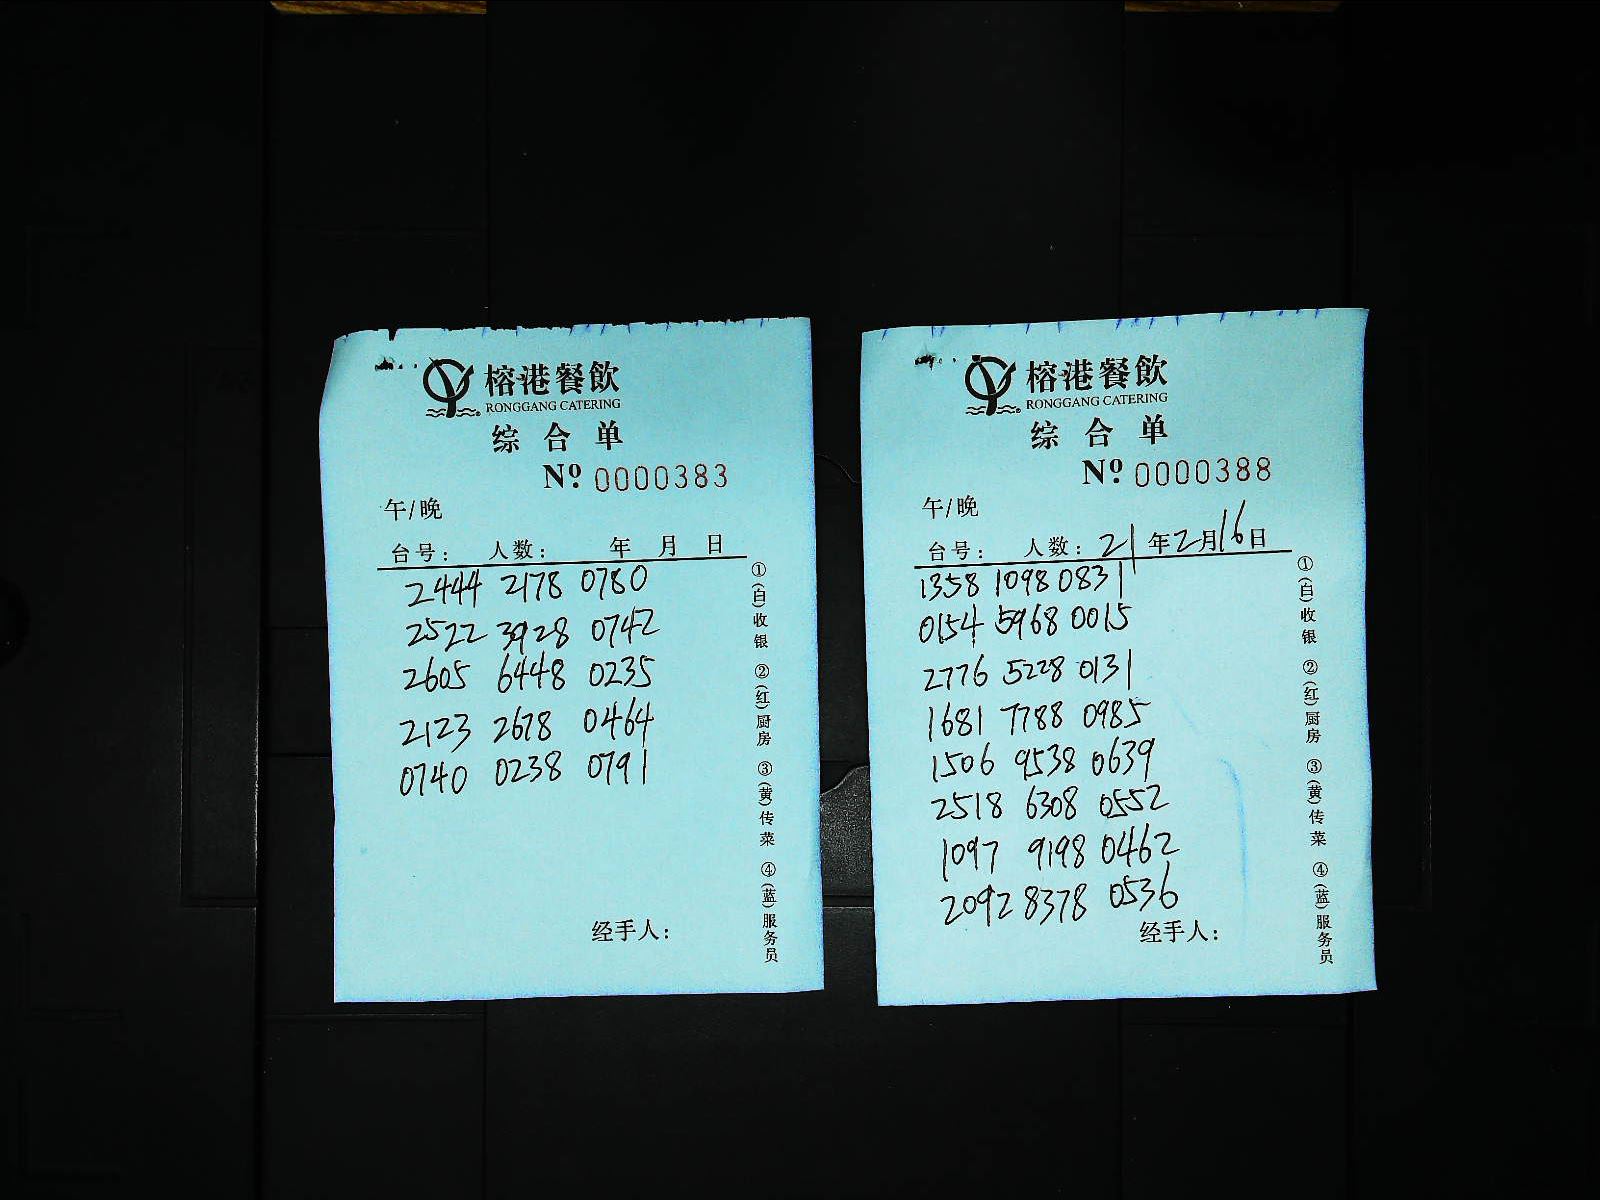 榕港餐飲
RONGGANG CATERING
综合单
№ 0000383
午/晚
台号: 人数: 年 月 日
2444 2178 0780
2522 3928 0742
2605 6448 0235
2123 2678 0464
0740 0238 0791
经手人:
①(白)收银 ②(红)厨房 ③(黄)传菜 ④(蓝)服务员
榕港餐飲
RONGGANG CATERING
综合单
№ 0000388
午/晚
台号: 人数: 21年2月16日
1358 1098 0831
0154 5968 0015
2776 5228 0131
1681 7788 0985
1506 9538 0639
2518 6308 0552
1097 9198 0462
2092 8378 0536
经手人:
①(白)收银 ②(红)厨房 ③(黄)传菜 ④(蓝)服务员